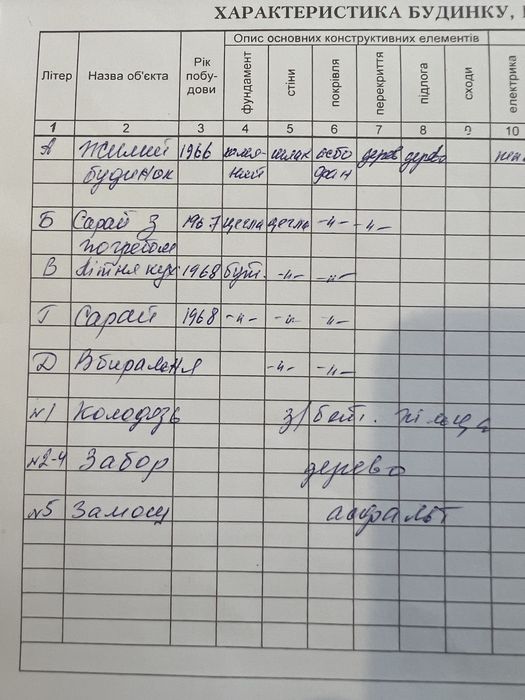 ХАРАКТЕРИСТИКА БУДИНКУ,
Опис основних конструктивних елементів
Літер Назва об'єкта Рік побу- дови фундамент стіни покрівля перекриття підлога сходи електрика
1 2 3 4 5 6 7 8 9 10
А Жилий 1966 шлак азбо дерев дерево
будинок
Б Сарай з 1967 цегла цегла -"- -"-
погребом
В Літня кух 1968 бут. -"- -"-
Г Сарай 1968 -"- -"- -"-
Д Вбиральня -"- -"-
№1 Колодязь з/бет.
№2-4 Забор дерево
№5 Замощ асфальт